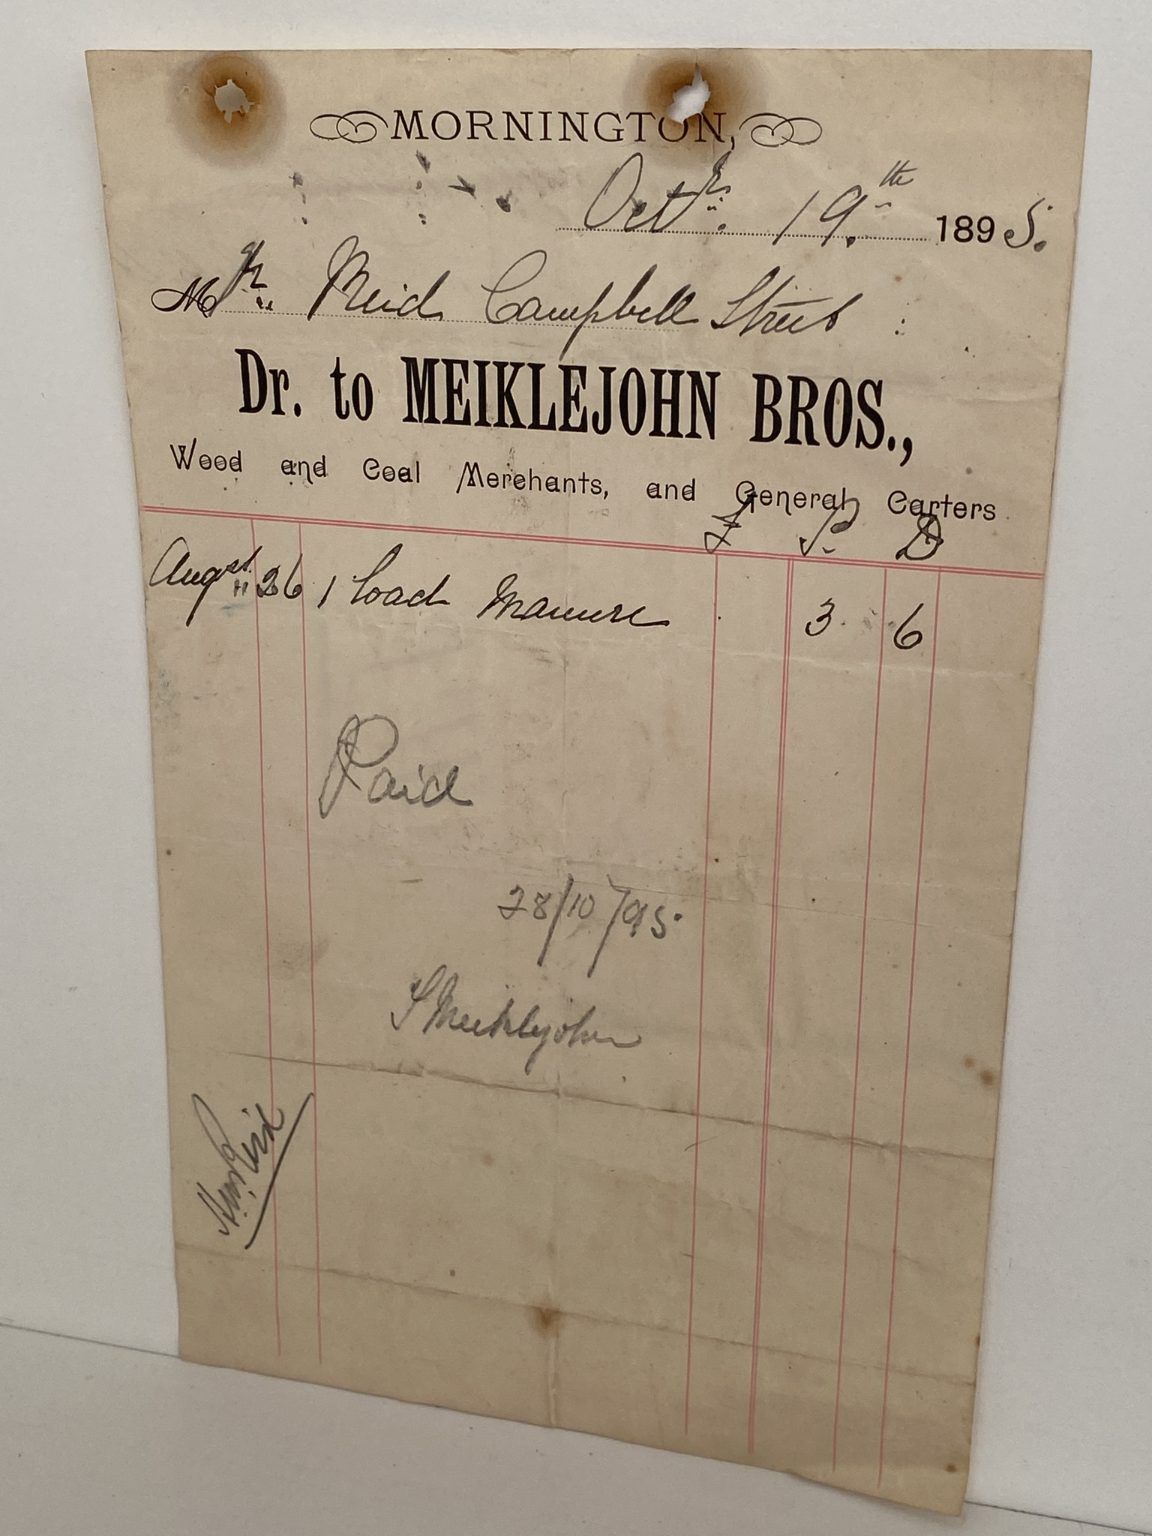 MORNINGTON,
Octr. 19.th 1895.
Mr. Reid Campbell Street
Dr. to MEIKLEJOHN BROS.,
Wood and Coal Merchants, and General Carters
£ S. D
Augst 26 1 load Manure 3 6
Paid
28/10/95.
S Meiklejohn
Reid